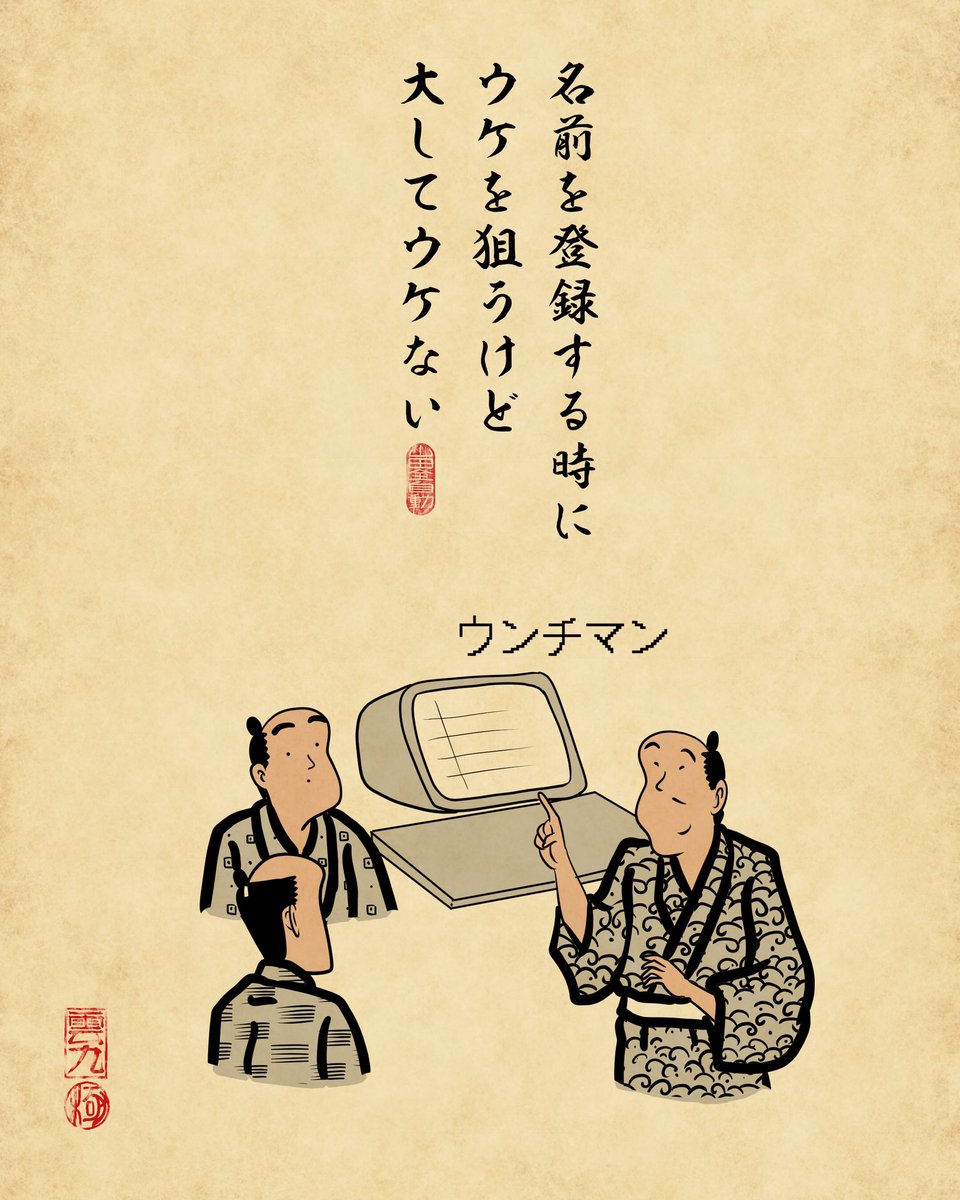 名前を登録する時に
ウケを狙うけど
大してウケない
ウンチマン